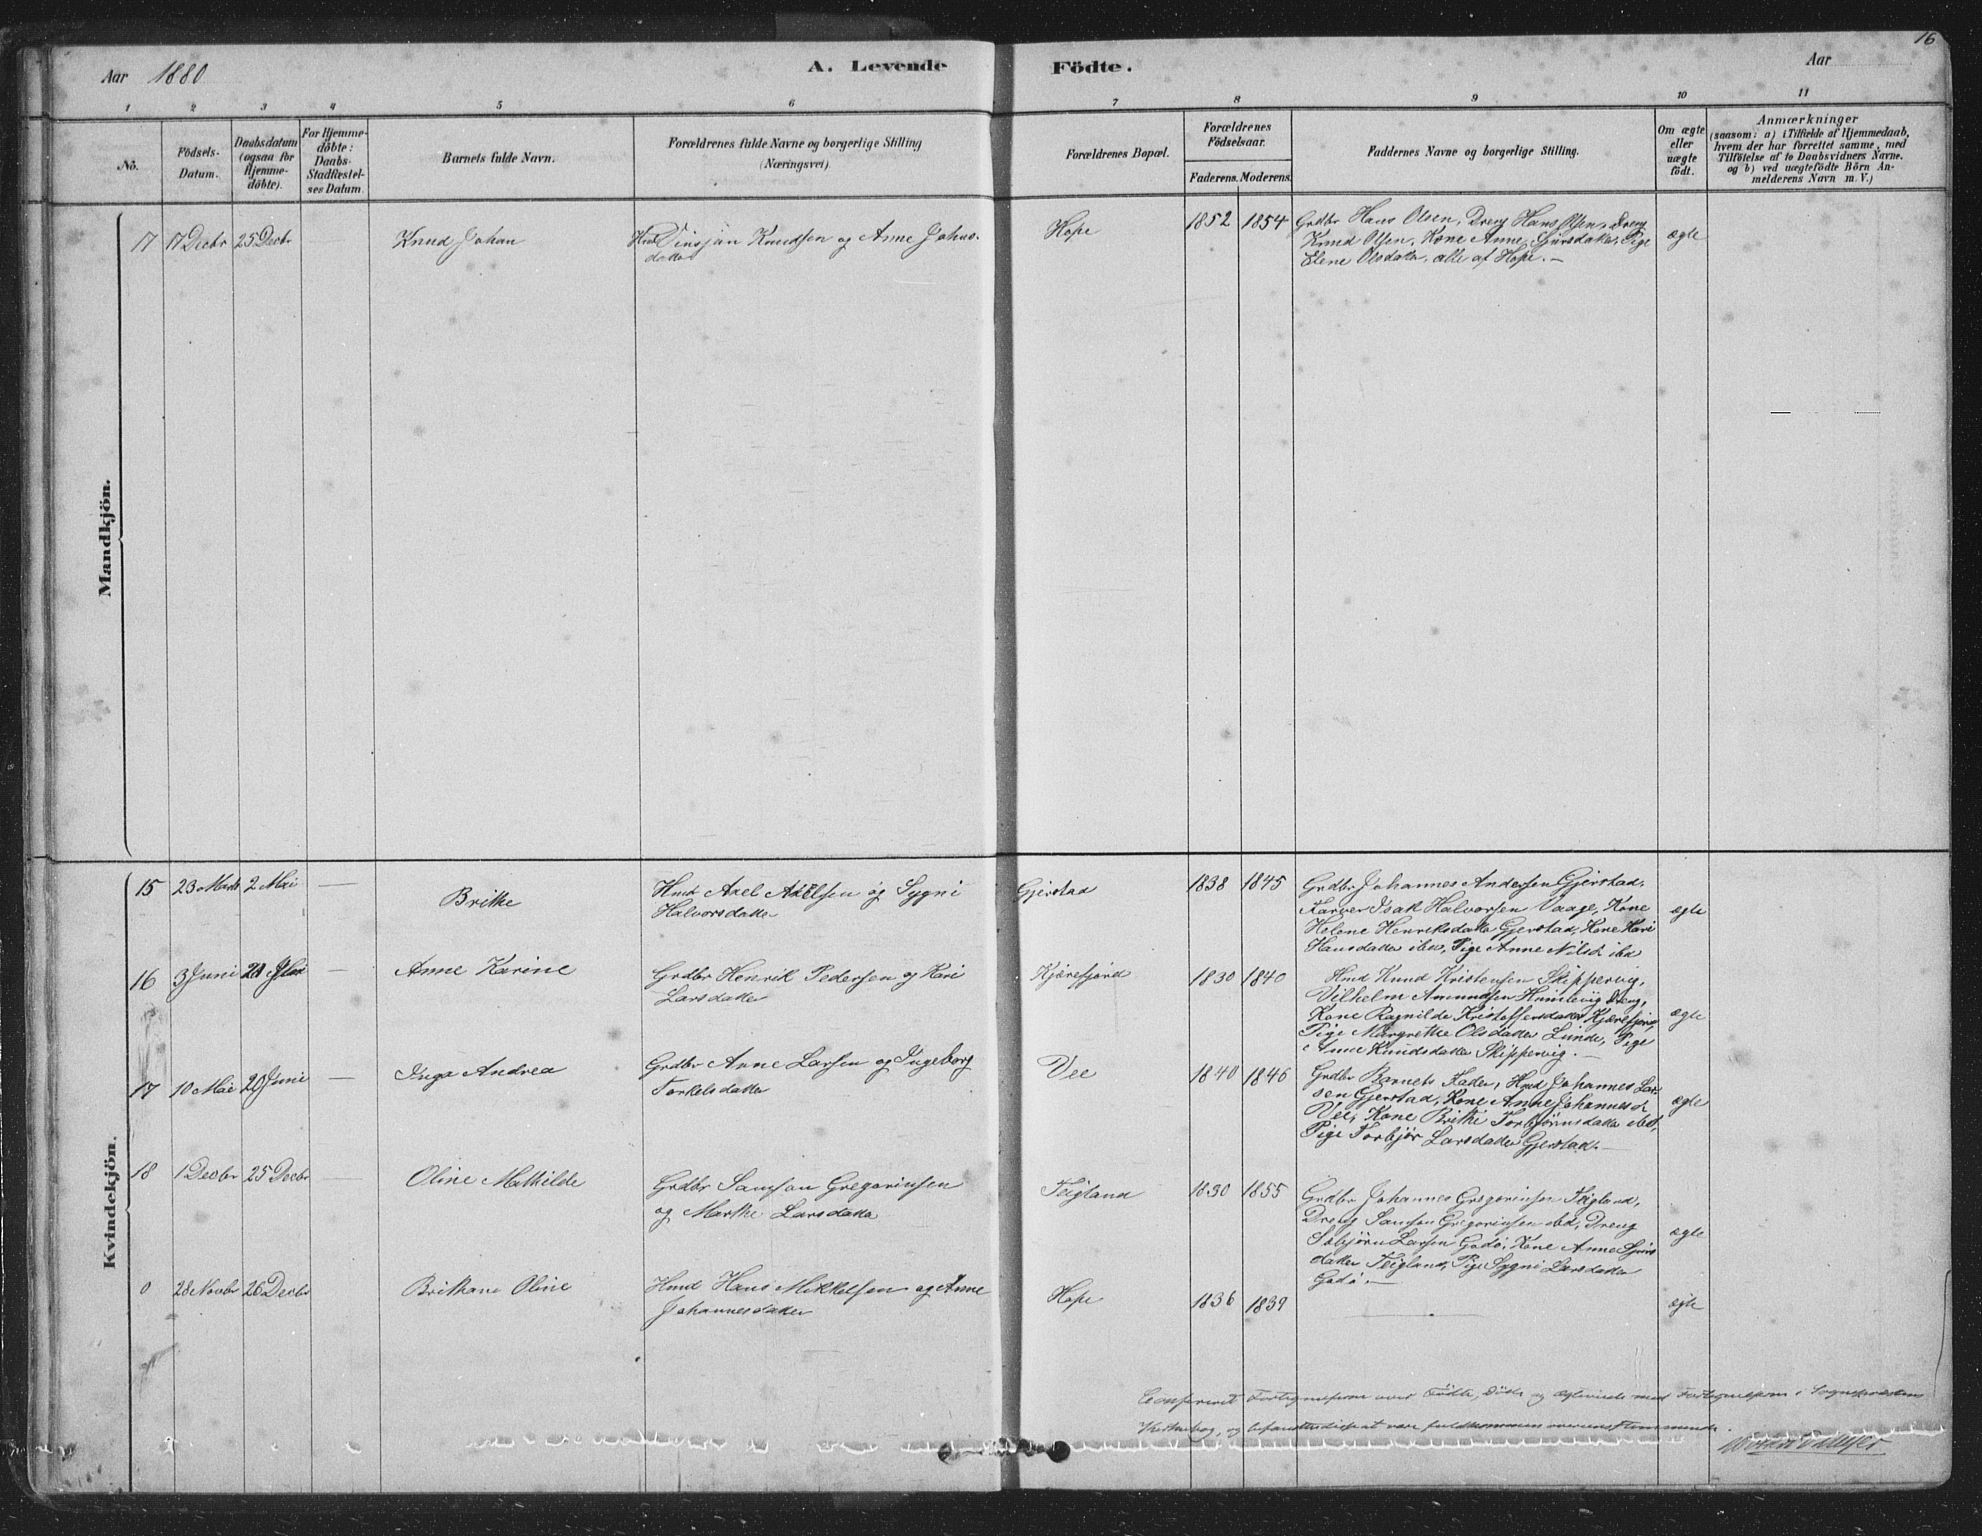 16
Aar 1880
A. Levende Födte.
Aar
1 2 3 4 5 6 7 8 9 10 11
No.
Födsels-Datum.
Daabsdatum (ogsaa for Hjemme-döbte).
For Hjemme-döbte: Daabs-Stadfæstel-ses Datum.
Barnets fulde Navn.
Forældrenes fulde Navne og borgerlige Stilling (Næringsvei).
Forældrenes Bopæl.
Forældrenes Födselsaar.
Faderens. Moderens.
Faddernes Navne og borgerlige Stilling.
Om ægte eller uægte födt.
Anmærkninger
(saasom: a) i Tilfælde af Hjemmedaab,
hvem der har forrettet samme, med
Tilföielse af to Daabsvidners Navne.
og b) ved uægtefödte Börn An-
melderens Navn m. V.)
Mandkjön.
17 17 Decbr 25 Decbr — Knud Johan
Knudsen og Anne Johns-
datter
Hope 1852 1854
Grdbr Hans Olsen, Dreng Hans Olsen, Dreng
Knud Olsen, Kone Anne Sjursdatter, Pige
Elene Olsdatter, alle af Hope. —
ægte
Kvindekjön.
15 23 Marts 2 Mai — Brithe
Hmd Axel Axelsen og Sygni
Halvorsdatter
Gjerstad 1838 1845
Grdbr Johannes Andersen Gjerstad,
Farver Isak Halvorsen Vaage, Kone
Helene Henriksdatter Gjerstad, Kone Kari
Hansdatter ibd, Pige Anne Nilsd. ibd
ægte
16 3 Juni 20 — Anne Karine
Grdbr Henrik Pedersen og Kari
Larsdatter
Kjærefjord 1830 1840
Hmd Knud Kristensen Skippervig,
Vilhelm Amundsen Humlevig Dreng,
Kone Ragnilde Kristoffersdatter Kjærefjord,
Pige Margrethe Olsdatter Lunde, Pige
Anne Knudsdatter Skippervig. —
ægte
17 10 Mai 20 Juni — Inga Andrea
Grdbr Arne Larsen og Ingeborg
Torkelsdatter
Vee 1840 1846
Grdbr Barnets Fader, Hmd Johannes Lar-
sen Gjerstad, Kone Anne Johannesd.
Vee, Kone Brithe Torbjörnsdatter ibd,
Pige Torbjör Larsdatter Gjerstad. —
ægte
18 1 Decbr 25 Decbr — Oline Mathilde
Grdbr Samson Gregoriusen
og Marthe Larsdatter
Teigland 1830 1855
Grdbr Johannes Gregoriusen Teigland,
Dreng Samson Gregoriusen ibd, Dreng
Larsen Godö, Kone Anne Sjurs
datter Teigland, Pige Sygni Larsdatter
Godö. —
ægte
0 28 Novbr 26 Decbr Brithane Oline
Hmd Hans Mikkelsen og Anne
Johannesdatter
Hope 1836 1839
—
ægte
Confereret Fortegnelserne over Födte, Döde og Ægteviede med Fortegnelserne i Sognepræstens
Kirkebog, og befandtes disse at være fuldkommen overensstemmende.